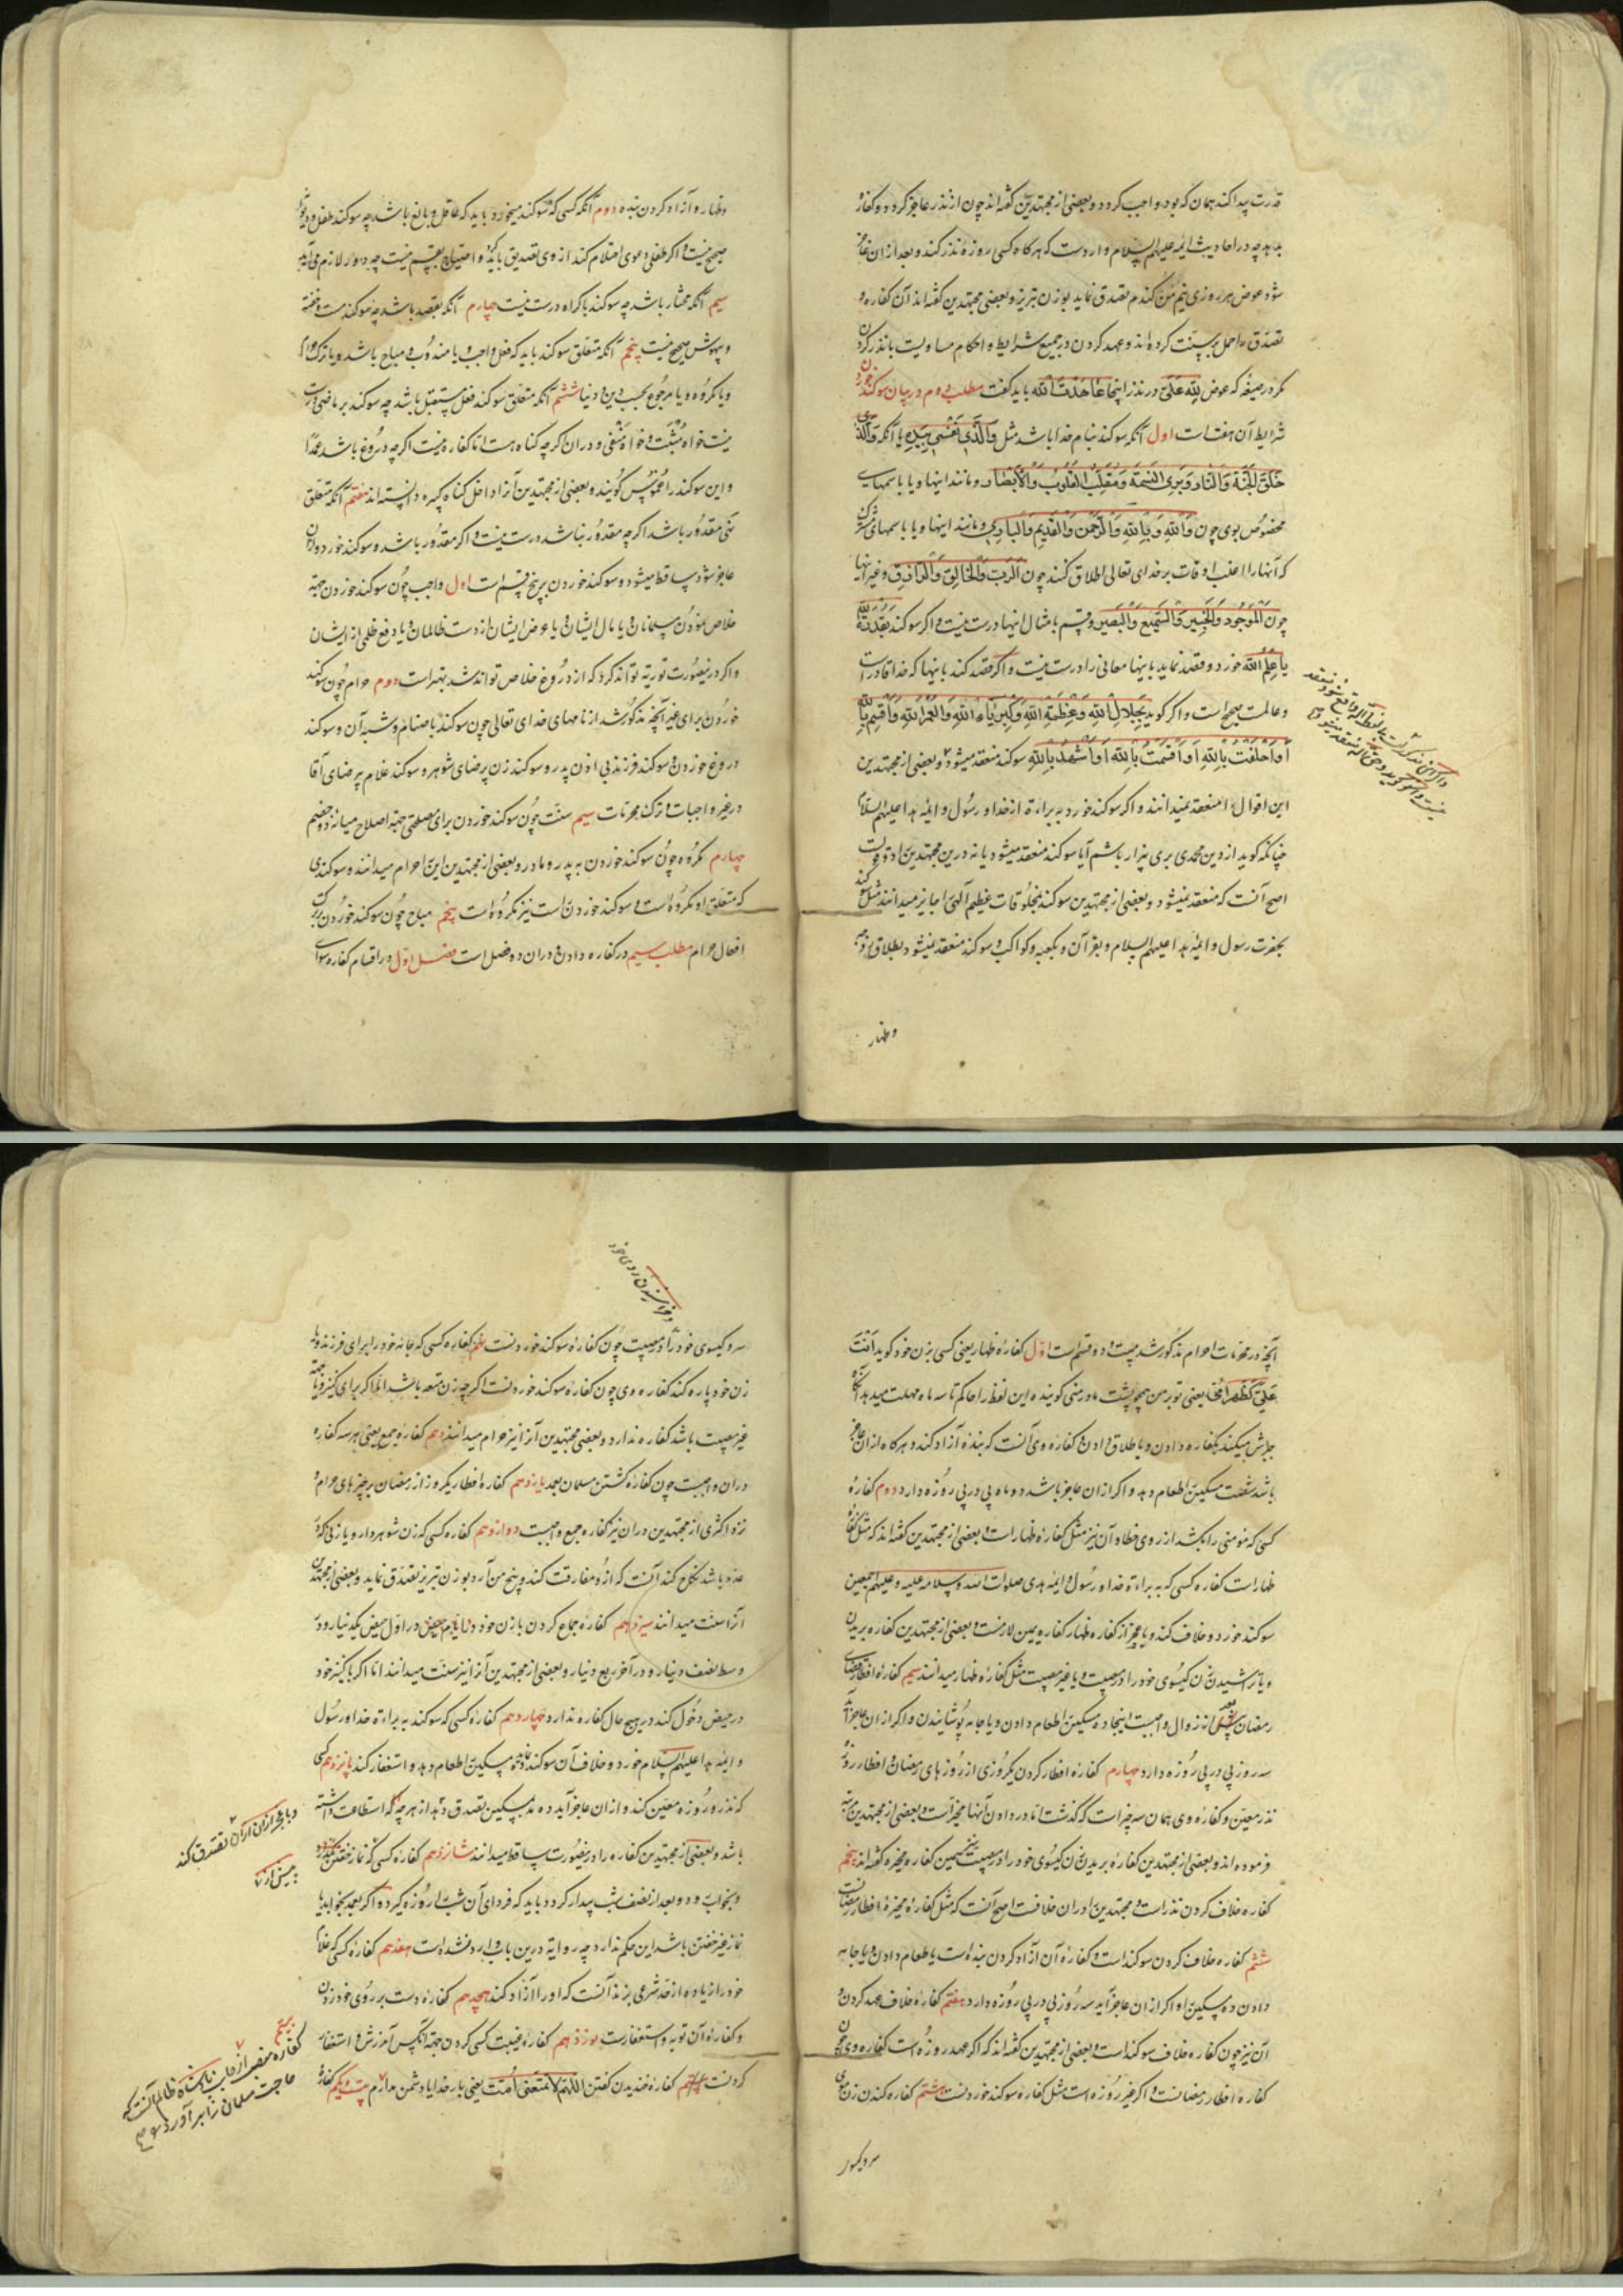 قدرت پیدا کند همان که بود واجب کردد و بعضی از مجتهدین گفته‌اند چون از نذر عاجز گردد و کفاره
بدهد چه در احادیث ائمه علیهم السلام وارد است که هرکاه کسی روزه نذر کند و بعد از ان عاجز
شود عوض هر روزی نیم من گندم تصدق نماید بوزن تبریز و بعضی مجتهدین گفته‌اند آن کفاره و
تصدق را حمل بر سنت کرده‌اند و عهد کردن در جمیع شرایط و احکام مساویست با نذر کردن
مگر در صیغه که عوض لله علی در نذر اینجا عاهدت الله باید گفت مطلب دوم در بیان سوکند خوردن
شرایط آن هفت است اول آنکه سوکند بنام خدا باشد مثل والذی نفسی بیده یا آنکه والذی
خلق الجنة والنار وبری النسمة ومقلب القلوب والابصار و مانند اینها و یا باسمهای
مخصوص بوی چون والله وبالله والرحمن والقدیم والباری و مانند اینها و یا باسمهای مشترک
که آنها را اغلب اوقات بر خدای تعالی اطلاق کنند چون الرب والخالق والرازق و غیر اینها
چون الموجود والخبیر والسمیع والبصیر و قسم بامثال اینها درست نیست و اگر سوکند بقدرة الله
یا علم الله خورد و قصد نماید باینها معانی را درست نیست و اگر قصد کند باینها که خدا قادر است
و عالمست صحیح است و اگر کوید بجلال الله وعظمة الله وکبریاء الله ولعمر الله واقسم بالله
او احلفت بالله او اقسمت بالله او اشهد بالله سوکند منعقد میشود و بعضی از مجتهدین
این اقوال را منعقد نمیدانند و اگر سوکند خورد به براءة از خدا و رسول و ایمه هدا علیهم السلام
چنانکه کوید از دین محمدی بری بیزار باشم آیا سوکند منعقد میشود یا نه درین مجتهدین را دو قول است
اصح آنست که منعقد نمیشود و بعضی از مجتهدین سوکند بمخلوقات عظیم الهی را جایز میدانند مثل سوکند
بحضرت رسول و ایمه هدا علیهم السلام و بقرآن و بکعبه و کواکب و سوکند منعقد نمیشود بطلاق زوجه
وظهار
وظهار و آزاد کردن بنده دوم آنکه کسی که سوکند میخورد باید که عاقل و بالغ باشد چه سوکند طفل و دیوانه
صحیح نیست و اگر طفلی دعوی احتلام کند از وی تصدیق باید کرد و احتیاج بقسم نیست چه دور لازم می‌آید
سیم آنکه مختار باشد چه سوکند باکراه درست نیست چهارم آنکه بقصد باشد چه سوکند مست و خفته
و بیهوش صحیح نیست پنجم آنکه متعلق سوکند باید که فعل واجب و یا مندوب و مباح باشد و یا ترک حرام
و یا مکروه و یا مرجوح بحسب دین و دنیا ششم آنکه متعلق سوکند فعل مستقبل باشد چه سوکند بر ماضی درست
نیست خواه مثبت و خواه منفی و در ان کرچه کناه هست اما کفاره نیست اگرچه دروغ باشد عمدا
و این سوکند را غموس کویند و بعضی از مجتهدین آنرا داخل کناه کبیره دانسته‌اند هفتم آنکه متعلق
سی مقدور باشد اگرچه مقدور نباشد درست نیست و اگر مقدور باشد و سوکند خورد و از ان
عاجز شود ساقط میشود و سوکند خوردن بر پنج قسم است اول واجب چون سوکند خوردن جهة
خلاص نمودن مسلمانان و یا مال ایشان و یا عرض ایشان از دست ظالمان و یا دفع ظلمی از ایشان
و اگر درینصورت توریه تواند کرد که از دروغ خلاص تواند شد بهتر است دوم حرام چون سوکند
خوردن برای غیر آنچه مذکور شد از نامهای خدای تعالی چون سوکند باصنام و شبه آن و سوکند
دروغ خوردن و سوکند فرزند بی اذن پدر و سوکند زن بی رضای شوهر و سوکند غلام بی رضای آقا
در غیر واجبات و ترک محرمات سیم سنت چون سوکند خوردن برای مصلحتی جهة اصلاح میانه دو خصم
چهارم مکروه چون سوکند خوردن به پدر و مادر و بعضی از مجتهدین این را حرام میدانند و سوکندی
که متعلق او مکروه است و سوکند خوردن راست نیز مکروه است پنجم مباح چون سوکند خوردن بر ترک
افعال حرام مطلب سیم در کفاره دادن و در ان دو فصل است فصل اول در اقسام کفاره سوای
آنچه در محرمات احرام مذکور شد بیست و دو قسم است اول کفارهٔ ظهار یعنی کسی بزن خود کوید انت
علی کظهر امی یعنی تو بر من همچو پشت مادر منی کوینده این لفظ را حاکم تا سه ماه مهلت میدهد آنکاه
جبرش میکند بکفاره دادن و یا طلاق دادن و کفاره وی آنست که بنده آزاد کند و هرکاه از ان عاجز
باشد شصت مسکین را طعام دهد و اگر از ان عاجز باشد دو ماه پی در پی روزه دارد دوم کفارهٔ
کسی که مومنی را بکشد از روی خطا و آن نیز مثل کفارهٔ ظهار است و بعضی از مجتهدین گفته‌اند که مثل کفاره
ظهار است کفاره کسی که به براءة خدا و رسول و ایمه هدی صلوات الله وسلامه علیه وعلیهم اجمعین
سوکند خورد و خلاف کند و یا عجز از کفاره ظهار کفاره یمین لازمست و بعضی از مجتهدین کفاره بریدن
و یا تراشیدن زن کیسوی خود را در مصیبت و یا غیر مصیبت مثل کفاره ظهار میدانند سیم کفاره افطار قضای
رمضان بعد از زوال واجبست اینجا ده مسکین را طعام دادن و یا جامه پوشانیدن و اگر از ان عاجز آید
سه روز پی در پی روزه دارد چهارم کفاره افطار کردن یکروزی از روزهای رمضان و افطار روزهٔ
نذر معین و کفاره وی همان سه چیز است که کذشت اما در دادن آنها مخیر است و بعضی از مجتهدین مرتبه
فرموده‌اند و بعضی از مجتهدین کفارهٔ بریدن زن کیسوی خود را در مصیبت همین کفاره مخیره گفته‌اند پنجم
کفاره خلاف کردن نذر است و مجتهدین را در ان خلافست اصح آنست که مثل کفارهٔ مخیرهٔ افطار رمضانست
ششم کفاره خلاف کردن سوکند است و کفارهٔ آن آزاد کردن بنده است یا طعام دادن و یا جامه
دادن ده مسکین را و اگر از ان عاجز آید سه روز پی در پی روزه دارد هفتم کفارهٔ خلاف عهد کردن و
آن نیز چون کفاره خلاف سوکند است و بعضی از مجتهدین گفته‌اند که اگر عهد روزه است کفاره وی چون
کفارهٔ افطار رمضانست و اگر غیر روزه است مثل کفاره سوکند خوردنست هشتم کفاره کندن زن موی
سر و کیسو
و خراشیدن روی خود
سر و کیسوی خود را در مصیبت چون کفارهٔ سوکند خوردنست نهم کفاره کسی که جامه خود را برای فرزند و یا
زن خود پاره کند کفاره وی چون کفارهٔ سوکند خوردنست اگرچه زن متعه باشد اما اگر برای کنیز و یا جهة
غیر مصیبت باشد کفاره ندارد و بعضی مجتهدین آنرا نیز حرام میدانند دهم کفارهٔ جمع یعنی هر سه کفاره
در ان واجبست چون کفارهٔ کشتن مسلمان بعمد یازدهم کفارهٔ افطار یکروز از رمضان بر چیزهای حرام و
نزد اکثری از مجتهدین در ان نیز کفاره جمع واجبست دوازدهم کفاره کسی که زن شوهردار و یا زنی که در
عده باشد نکاح کند آنست که از او مفارقت کند و پنج من آرد بوزن تبریز تصدق نماید و بعضی از مجتهدین
آنرا سنت میدانند سیزدهم کفاره جماع کردن با زن خود در ایام حیض در اول حیض یکدینار و در
وسط نصف دینار و در آخر ربع دینار و بعضی از مجتهدین آنرا نیز سنت میدانند اما اگر با کنیز خود
در حیض دخول کند در هیچ حال کفاره ندارد چهاردهم کفاره کسی که سوکند به براءة خدا و رسول
و ایمه هدا علیهم السلام خورد و خلاف آن سوکند کند ده مسکین را طعام دهد و استغفار کند پانزدهم کسی
که نذر روزه معین کند و از ان عاجز آید ده مد بمسکین تصدق دهد از هر چه که استطاعت داشته
باشد و بعضی از مجتهدین کفاره را درینصورت ساقط میدانند شانزدهم کفاره کسی که نماز خفتن نکذارد
و بخواب رود و بعد از نصف شب بیدار کردد باید که فردای آن شب را روزه کیرد و اگر بعمد بخوابد یا
نماز غیر خفتن باشد این حکم ندارد چه روایة درین باب وارد نشده است هفدهم کفارهٔ کسی که غلام
خود را زیاده از حد شرعی بزند آنست که او را آزاد کند هجدهم کفارهٔ دست بر روی خود زدن
و کفارهٔ آن توبه و استغفارست نوزدهم کفاره غیبت کسی کردن جهة آنکس آمرزش و استغفار
کردنست بیستم کفارهٔ خندیدن گفتن اللهم لا تمقتنی است یعنی بار خدایا دشمن مدارم بیست و یکم کفارهٔ